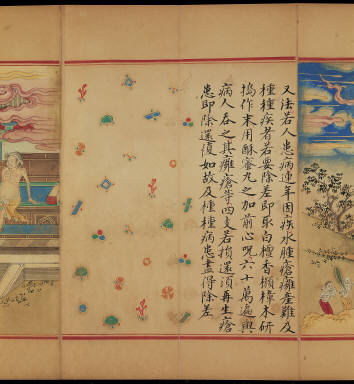 又法若人患病連年困疾水腫瘡癰產難及
種種疾者若要除差即取白檀香㯽樟木研
搗作末用酥蜜丸之加前心呪六十萬遍與
病人吞之其癰瘡等四支若損還須再生瘡
患即除還復如故及種種病患盡得除差